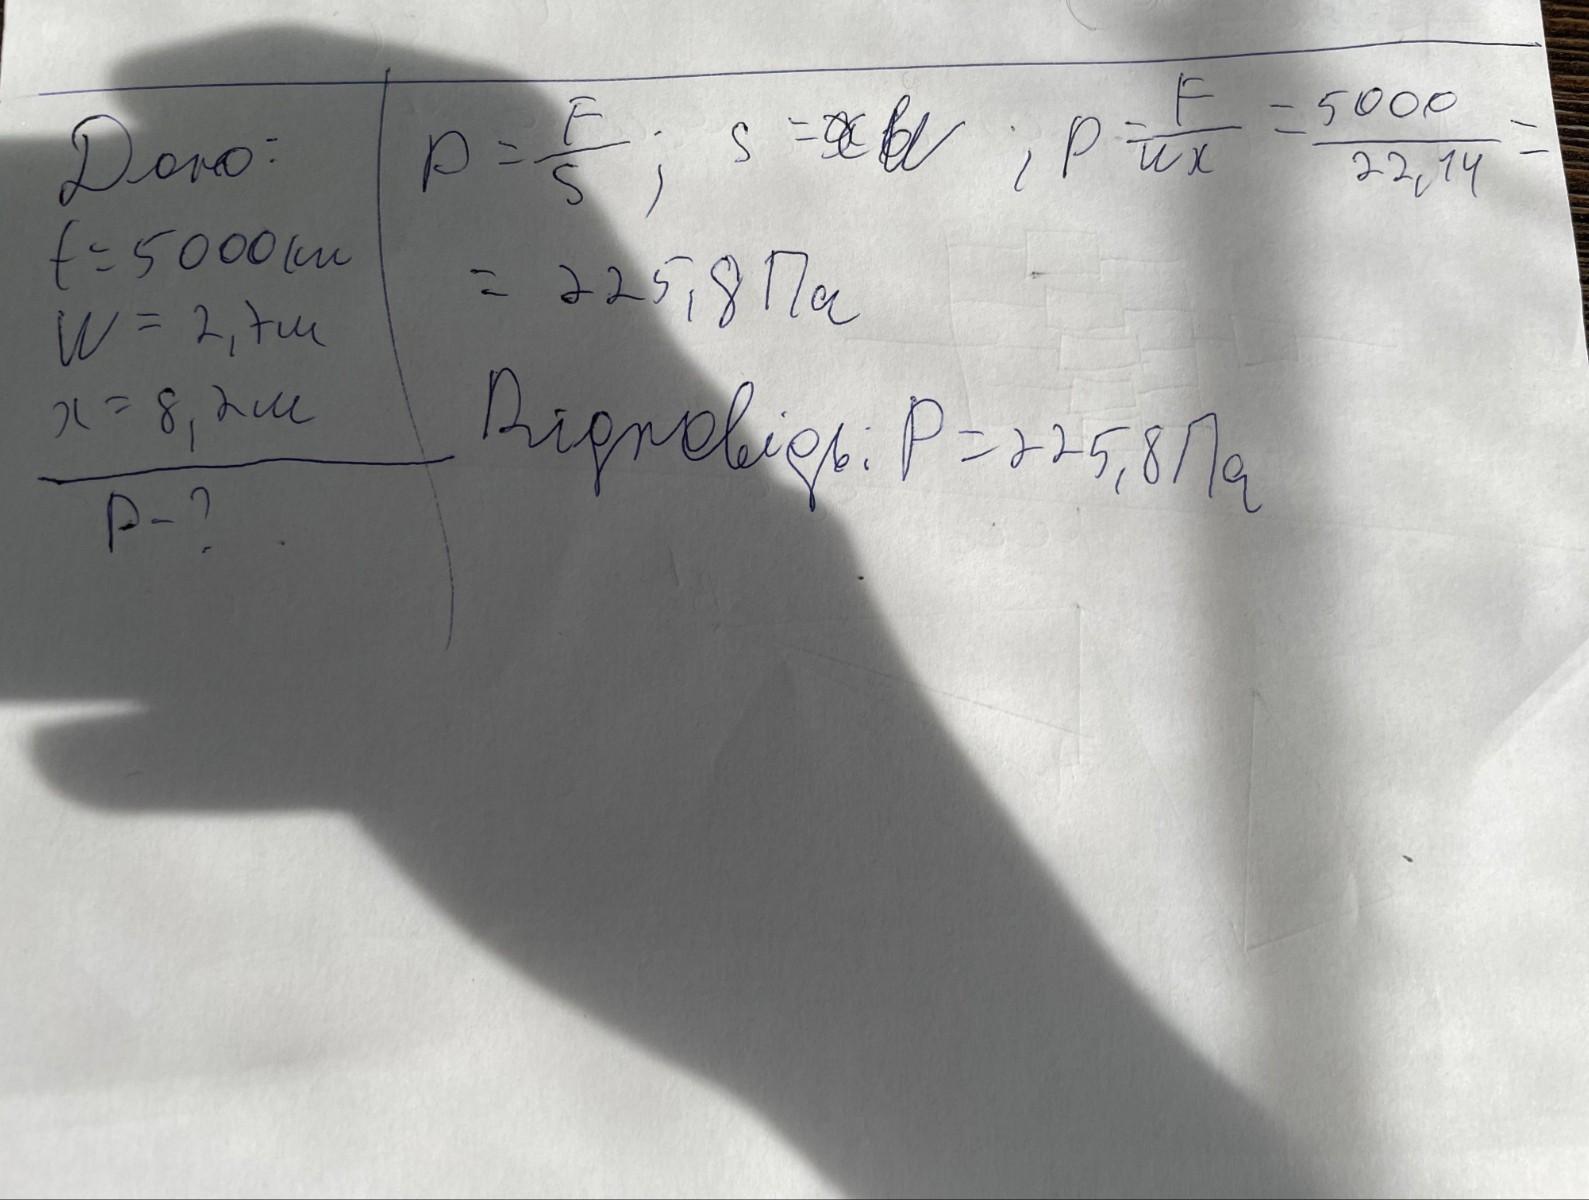 Дано:
f = 5000 км
W = 2,7 м
x = 8,2 м
P - ?
p = F/S ; s = xW ; p = F/wx = 5000/22,14 =
= 225,8 Па
Відповідь: P = 225,8 Па